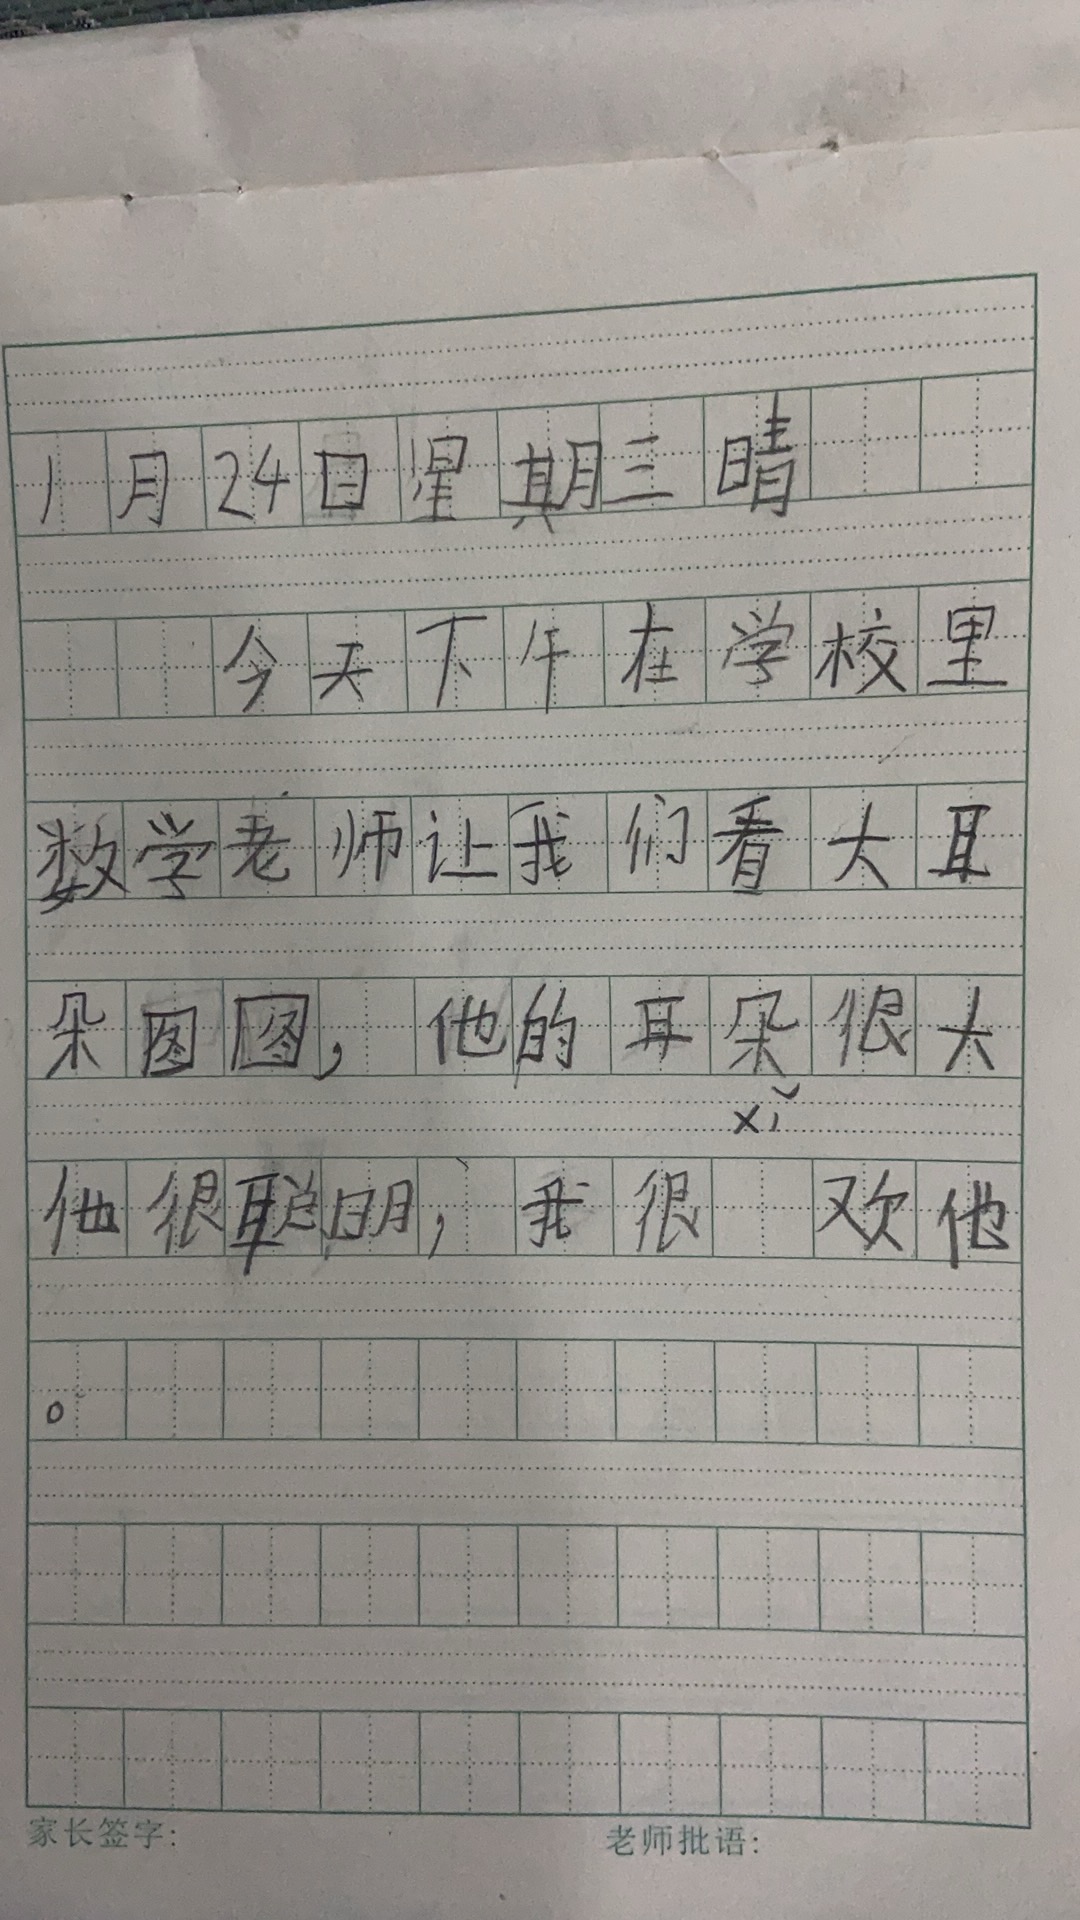 1月24日星期三晴
今天下午在学校里
数学老师让我们看大耳
朵图图，他的耳朵很大
xǐ
他很聪明，我很 欢他
。
家长签字：
老师批语：